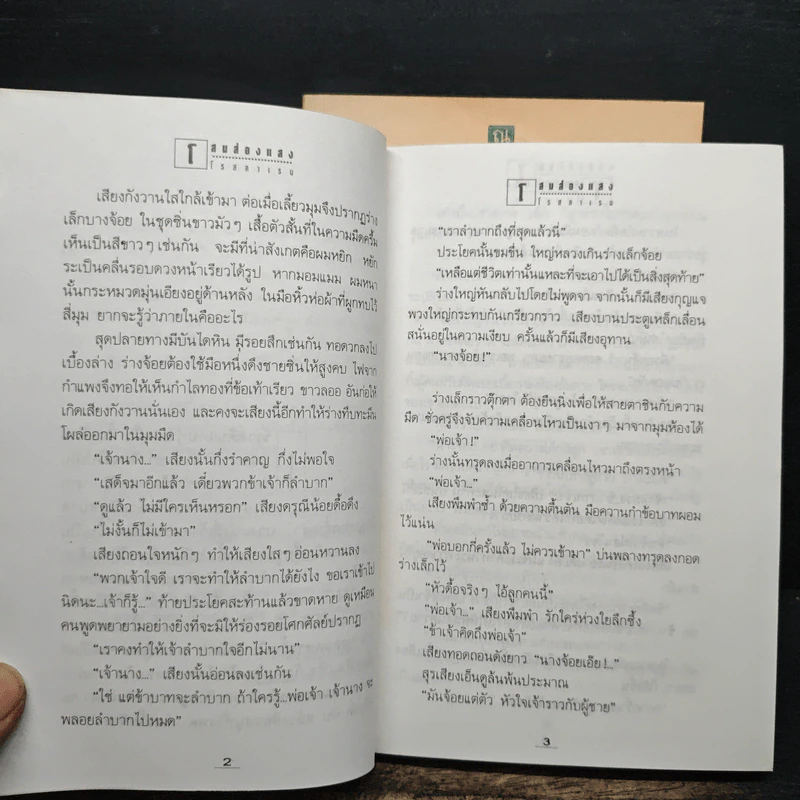 ณ
โ สนส่องแสง
โรสลาเรน
เสียงกังวานใสใกล้เข้ามา ต่อเมื่อเลี้ยวมุมจึงปรากฏร่าง
เล็กบางจ้อย ในชุดซิ่นขาวมัวๆ เสื้อตัวสั้นที่ในความมืดครึ้ม
เห็นเป็นสีขาวๆ เช่นกัน จะมีที่น่าสังเกตคือผมหยิก หยัก
ระเป็นคลื่นรอบดวงหน้าเรียวได้รูป หากมอมแมม ผมหนา
นั้นกระหมวดมุ่นเอียงอยู่ด้านหลัง ในมือหิ้วห่อผ้าที่ผูกทบไว้
สี่มุม ยากจะรู้ว่าภายในคืออะไร
สุดปลายทางมีบันไดหิน มีรอยสึกเช่นกัน ทอดวกลงไป
เบื้องล่าง ร่างจ้อยต้องใช้มือหนึ่งดึงชายซิ่นให้สูงคบ ไฟจาก
กำแพงจึงทอให้เห็นกำไลทองที่ข้อเท้าเรียว ขาวลออ อันก่อให้
เกิดเสียงกังวานนั่นเอง และคงจะเสียงนี้อีกทำให้ร่างทึบทะมึน
โผล่ออกมาในมุมมืด
“เจ้านาง...” เสียงนั้นกึ่งรำคาญ กึ่งไม่พอใจ
“เสด็จมาอีกแล้ว เดี๋ยวพวกข้าเจ้าก็ลำบาก”
“ดูแล้ว ไม่มีใครเห็นหรอก” เสียงดรุณีน้อยดื้อดึง
“ไม่งั้นก็ไม่เข้ามา”
เสียงถอนใจหนักๆ ทำให้เสียงใสๆ อ่อนหวานลง
“พวกเจ้าใจดี เราจะทำให้ลำบากได้ยังไง ขอเราเข้าไป
นิดนะ...เจ้าก็รู้...” ท้ายประโยคสะท้านแล้วขาดหาย ดูเหมือน
คนพูดพยายามอย่างยิ่งที่จะมิให้ร่องรอยโศกศัลย์ปรากฏ
“เราคงทำให้เจ้าลำบากใจอีกไม่นาน”
“เจ้านาง...” เสียงนั้นอ่อนลงเช่นกัน
“ใช่ แต่ข้าบาทจะลำบาก ถ้าใครรู้...พ่อเจ้า เจ้านาง จะ
พลอยลำบากไปหมด”
2
โ สนส่องแสง
โรสลาเรน
“เราลำบากถึงที่สุดแล้วนี่”
ประโยคนั้นขมขื่น ใหญ่หลวงเกินร่างเล็กจ้อย
“เหลือแต่ชีวิตเท่านั้นแหละที่จะเอาไปได้เป็นสิ่งสุดท้าย”
ร่างใหญ่หันกลับไปโดยไม่พูดจา จากนั้นก็มีเสียงกุญแจ
พวงใหญ่กระทบกันเกรียวกราว เสียงบานประตูเหล็กเลื่อน
สนั่นอยู่ในความเงียบ ครั้นแล้วก็มีเสียงอุทาน
“นางจ้อย!”
ร่างเล็กราวตุ๊กตา ต้องยืนนิ่งเพื่อให้สายตาชินกับความ
มืด ชั่วครู่จึงจับความเคลื่อนไหวเป็นเงาๆ มาจากมุมห้องได้
“พ่อเจ้า!”
ร่างนั้นทรุดลงเมื่ออาการเคลื่อนไหวมาถึงตรงหน้า
“พ่อเจ้า...”
เสียงพึมพำซ้ำ ด้วยความตื้นตัน มือควานกำข้อบาทผอม
ไว้แน่น
“พ่อบอกกี่ครั้งแล้ว ไม่ควรเข้ามา” บ่นพลางทรุดลงกอด
ร่างเล็กไว้
“หัวดื้อจริงๆ ไอ้ลูกคนนี้”
“พ่อเจ้า...” เสียงพึมพำ รักใคร่ห่วงใยลึกซึ้ง
“ข้าเจ้าคิดถึงพ่อเจ้า”
เสียงทอดถอนดังยาว “นางจ้อยเอ๊ย!...”
สุรเสียงเอ็นดูล้นพ้นประมาณ
“มันจ้อยแต่ตัว หัวใจเจ้าราวกับผู้ชาย”
3